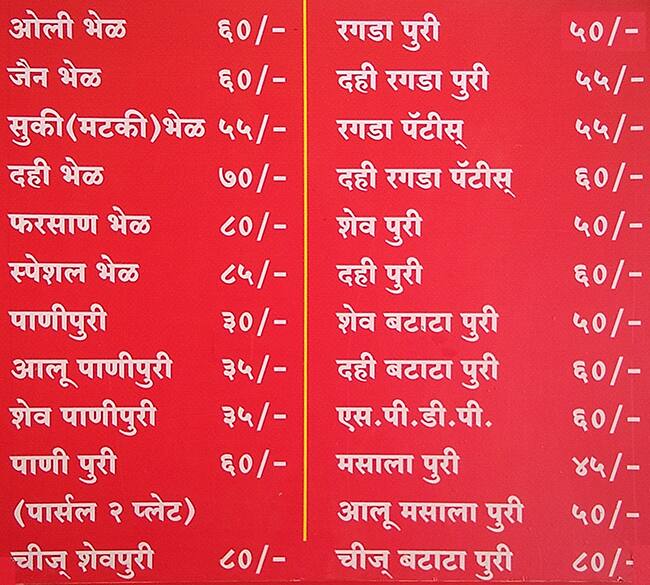 ओली भेळ ६०/-
जैन भेळ ६०/-
सुकी(मटकी)भेळ ५५/-
दही भेळ ७०/-
फरसाण भेळ ८०/-
स्पेशल भेळ ८५/-
पाणीपुरी ३०/-
आलू पाणीपुरी ३५/-
शेव पाणीपुरी ३५/-
पाणी पुरी ६०/-
(पार्सल २ प्लेट)
चीज् शेवपुरी ८०/-
रगडा पुरी ५०/-
दही रगडा पुरी ५५/-
रगडा पॅटीस् ५५/-
दही रगडा पॅटीस् ६०/-
शेव पुरी ५०/-
दही पुरी ६०/-
शेव बटाटा पुरी ५०/-
दही बटाटा पुरी ६०/-
एस.पी.डी.पी. ६०/-
मसाला पुरी ४५/-
आलू मसाला पुरी ५०/-
चीज् बटाटा पुरी ८०/-